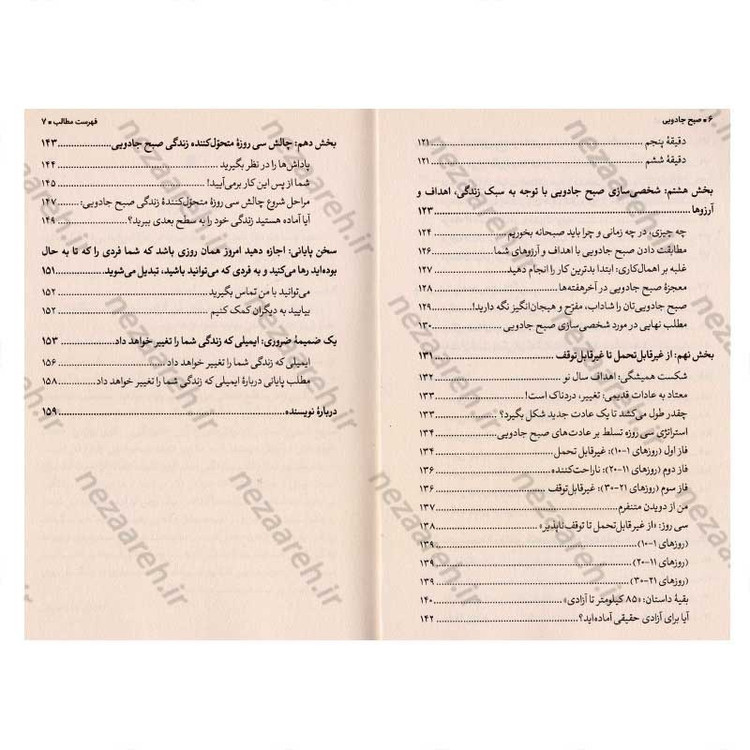 ۶ ▪ صبح جادویی
دقیقهٔ پنجم ........ ۱۲۱
دقیقهٔ ششم ........ ۱۲۱
بخش هشتم: شخصی‌سازی صبح جادویی با توجه به سبک زندگی، اهداف و
آرزوها ........ ۱۲۳
چه چیزی، در چه زمانی و چرا باید صبحانه بخوریم ........ ۱۲۴
مطابقت دادن صبح جادویی با اهداف و آرزوهای شما ........ ۱۲۶
غلبه بر اهمال‌کاری: ابتدا بدترین کار را انجام دهید ........ ۱۲۷
معجزهٔ صبح جادویی در آخرهفته‌ها ........ ۱۲۸
صبح جادویی‌تان را شاداب، مفرّح و هیجان‌انگیز نگه دارید! ........ ۱۲۹
مطلب نهایی در مورد شخصی‌سازی صبح جادویی ........ ۱۳۰
بخش نهم: از غیرقابل‌تحمل تا غیرقابل‌توقف ........ ۱۳۱
شکست همیشگی: اهداف سال نو ........ ۱۳۲
معتاد به عادات قدیمی: تغییر، دردناک است! ........ ۱۳۳
چقدر طول می‌کشد تا یک عادت جدید شکل بگیرد؟ ........ ۱۳۳
استراتژی سی روزه تسلط بر عادت‌های صبح جادویی ........ ۱۳۴
فاز اول (روزهای ۱-۱۰): غیرقابل تحمل ........ ۱۳۴
فاز دوم (روزهای ۱۱-۲۰): ناراحت‌کننده ........ ۱۳۶
فاز سوم (روزهای ۲۱-۳۰): غیرقابل‌توقف ........ ۱۳۶
من از دویدن متنفرم ........ ۱۳۷
سی روز: «از غیرقابل‌تحمل تا توقف‌ناپذیر» ........ ۱۳۸
(روزهای ۱-۱۰) ........ ۱۳۹
(روزهای ۱۱-۲۰) ........ ۱۳۹
(روزهای ۲۱-۳۰) ........ ۱۳۹
بقیهٔ داستان: «۸۵ کیلومتر تا آزادی» ........ ۱۴۰
آیا برای آزادی حقیقی آماده‌اید؟ ........ ۱۴۲
فهرست مطالب ▪ ۷
بخش دهم: چالش سی روزهٔ متحوّل‌کننده زندگی صبح جادویی ........ ۱۴۳
پاداش‌ها را در نظر بگیرید ........ ۱۴۴
شما از پس این کار برمی‌آیید! ........ ۱۴۵
مراحل شروع چالش سی روزهٔ متحوّل‌کنندهٔ زندگی صبح جادویی: ........ ۱۴۷
آیا آماده هستید زندگی خود را به سطح بعدی ببرید؟ ........ ۱۴۹
سخن پایانی: اجازه دهید امروز همان روزی باشد که شما فردی را که تا به حال
بوده‌اید رها می‌کنید و به فردی که می‌توانید باشید، تبدیل می‌شوید ........ ۱۵۱
می‌توانید با من تماس بگیرید ........ ۱۵۲
بیایید به دیگران کمک کنیم ........ ۱۵۲
یک ضمیمهٔ ضروری: ایمیلی که زندگی شما را تغییر خواهد داد ........ ۱۵۳
ایمیلی که زندگی شما را تغییر خواهد داد ........ ۱۵۶
مطلب پایانی دربارهٔ ایمیلی که زندگی شما را تغییر خواهد داد ........ ۱۵۸
دربارهٔ نویسنده ........ ۱۵۹
nezaareh.ir